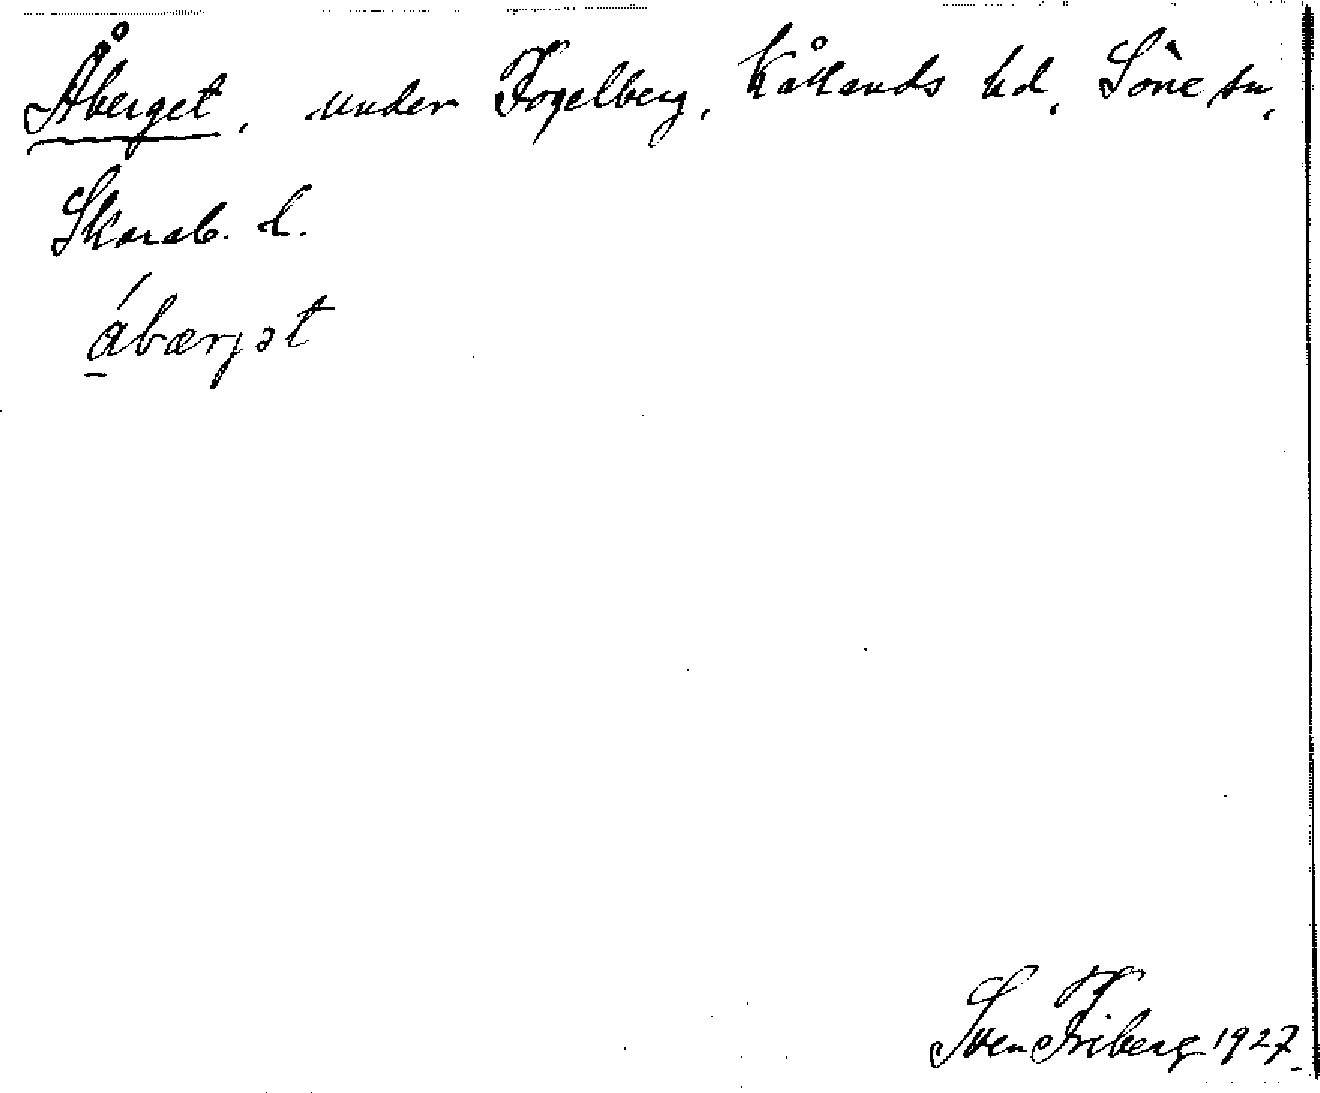 Åberget, under Fogelberg, Kållands hd, Söne sn,
Skarab. l.
ábærjət
Sven Friberg 1927.